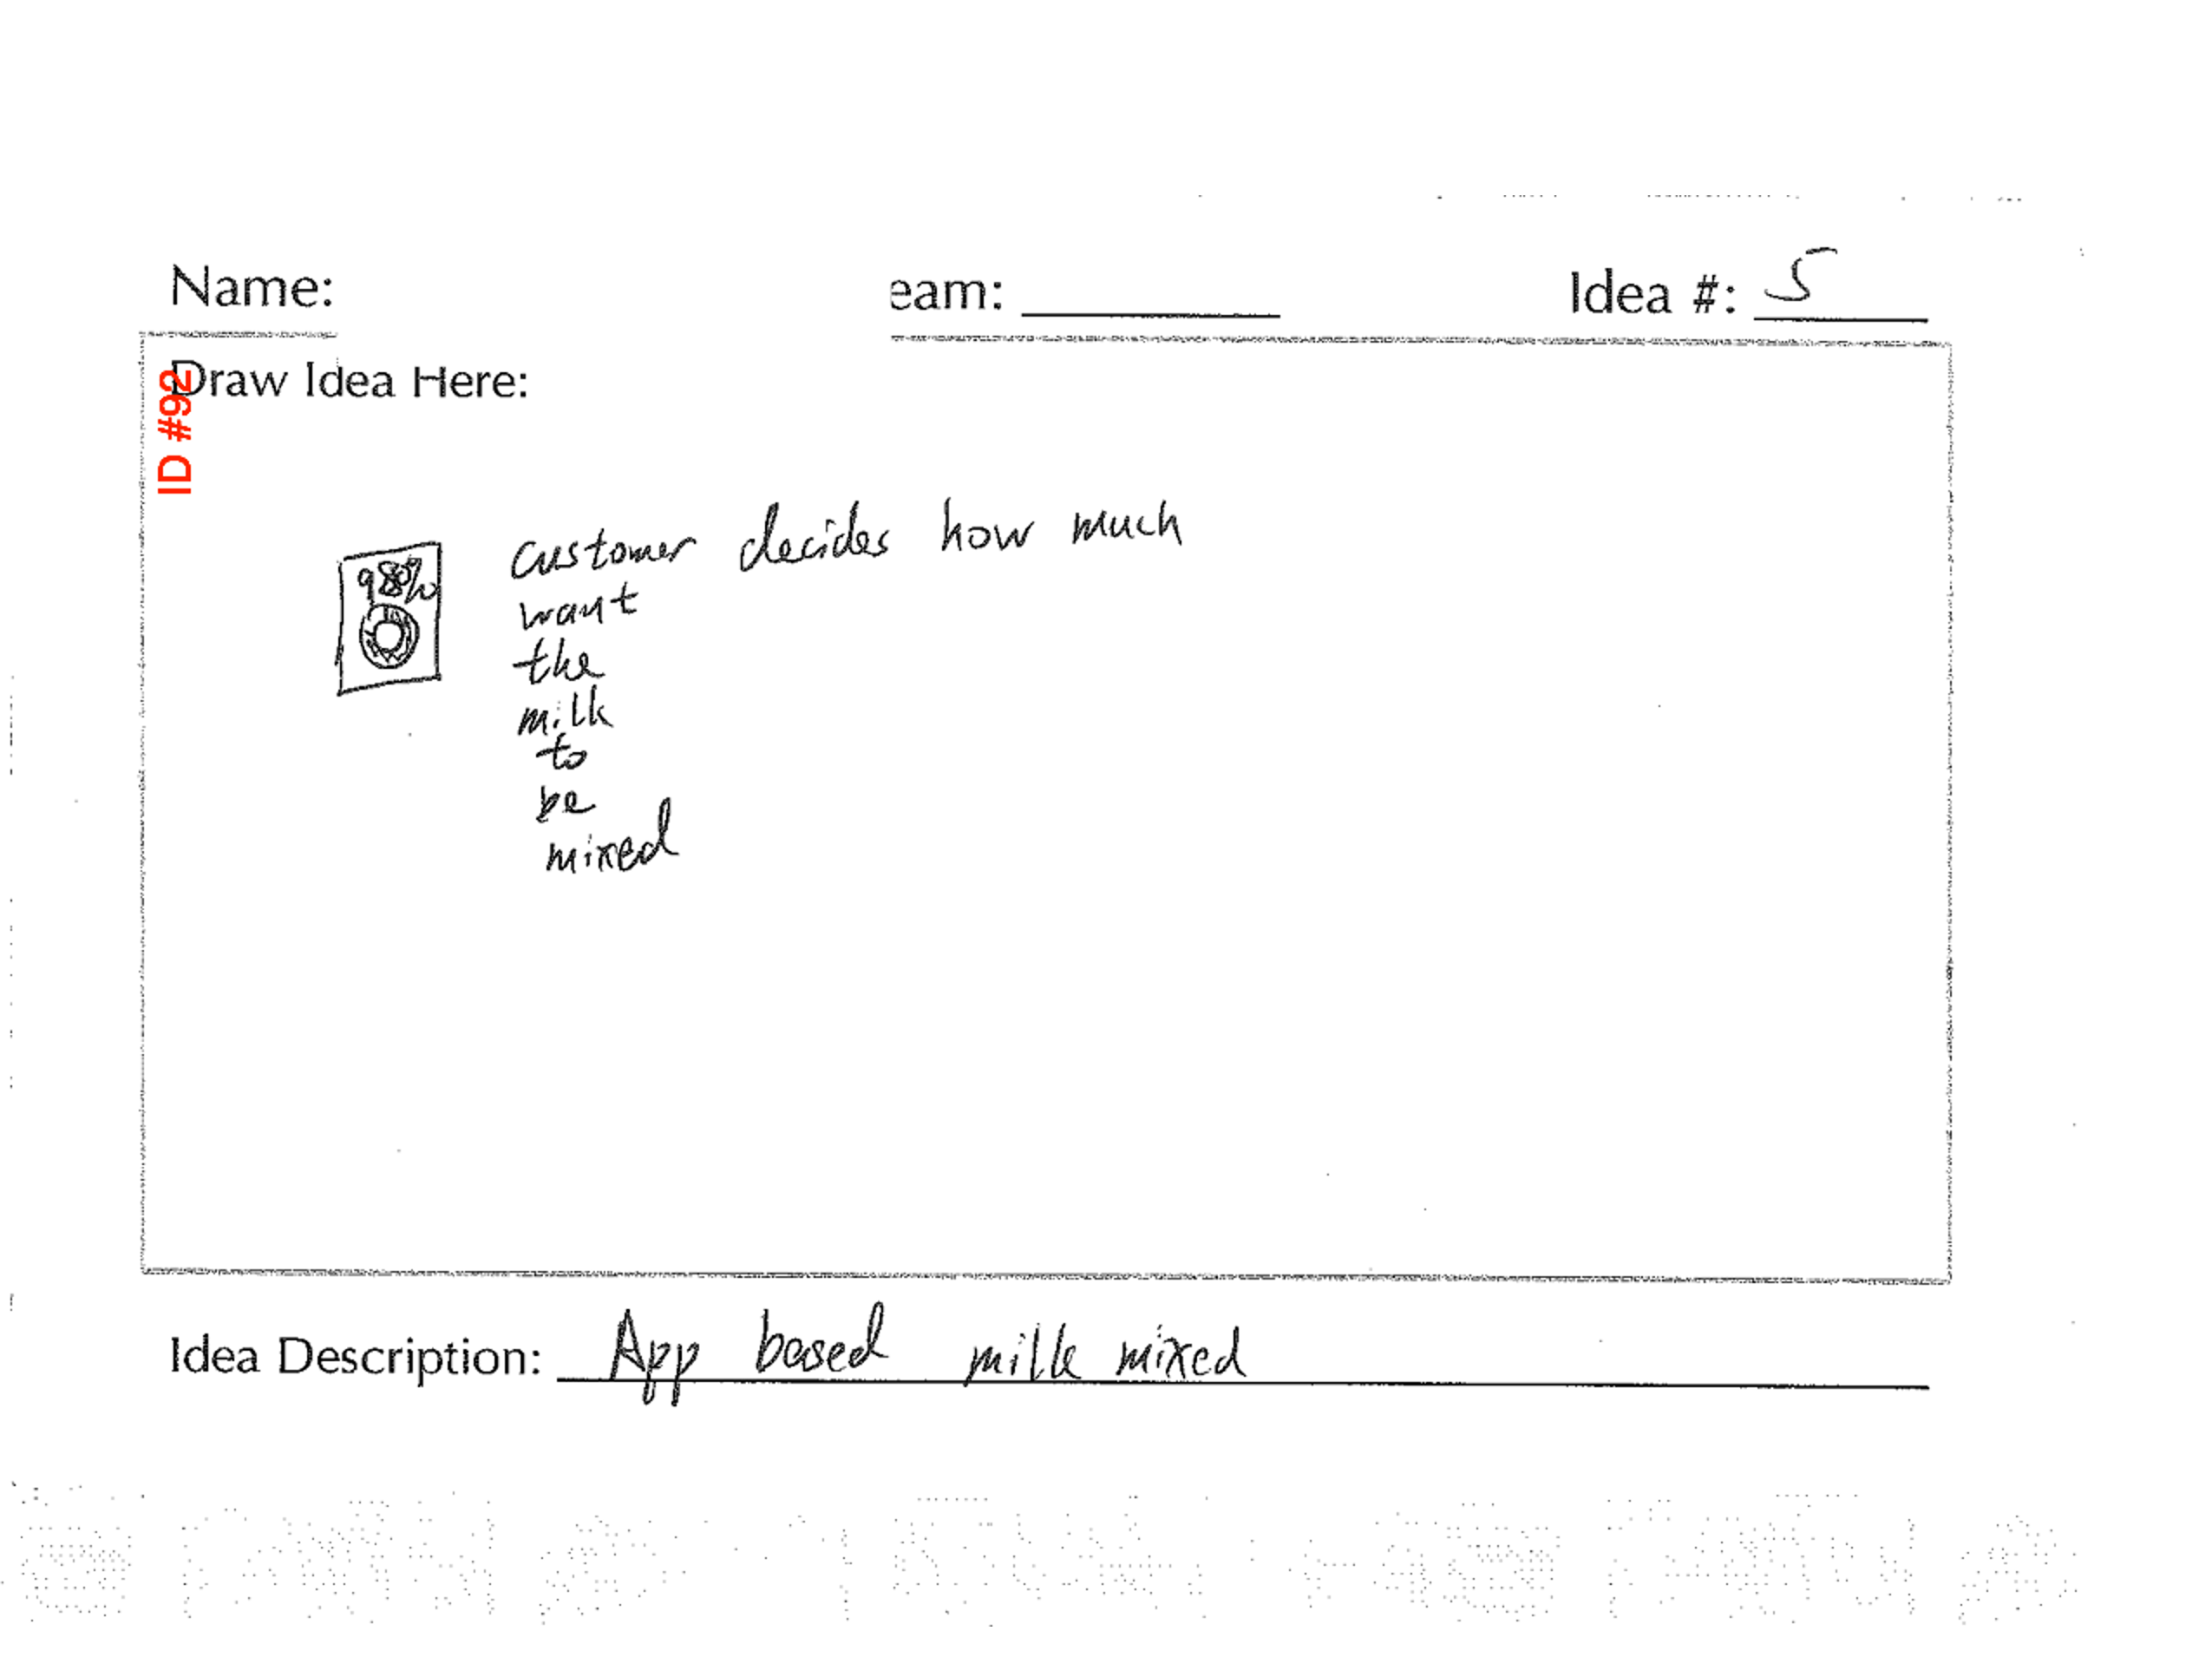 Name:
eam:
Idea #: 5
Draw Idea Here:
ID #92
98%
customer decides how much
want
the
milk
to
be
mixed
Idea Description: App based milk mixed